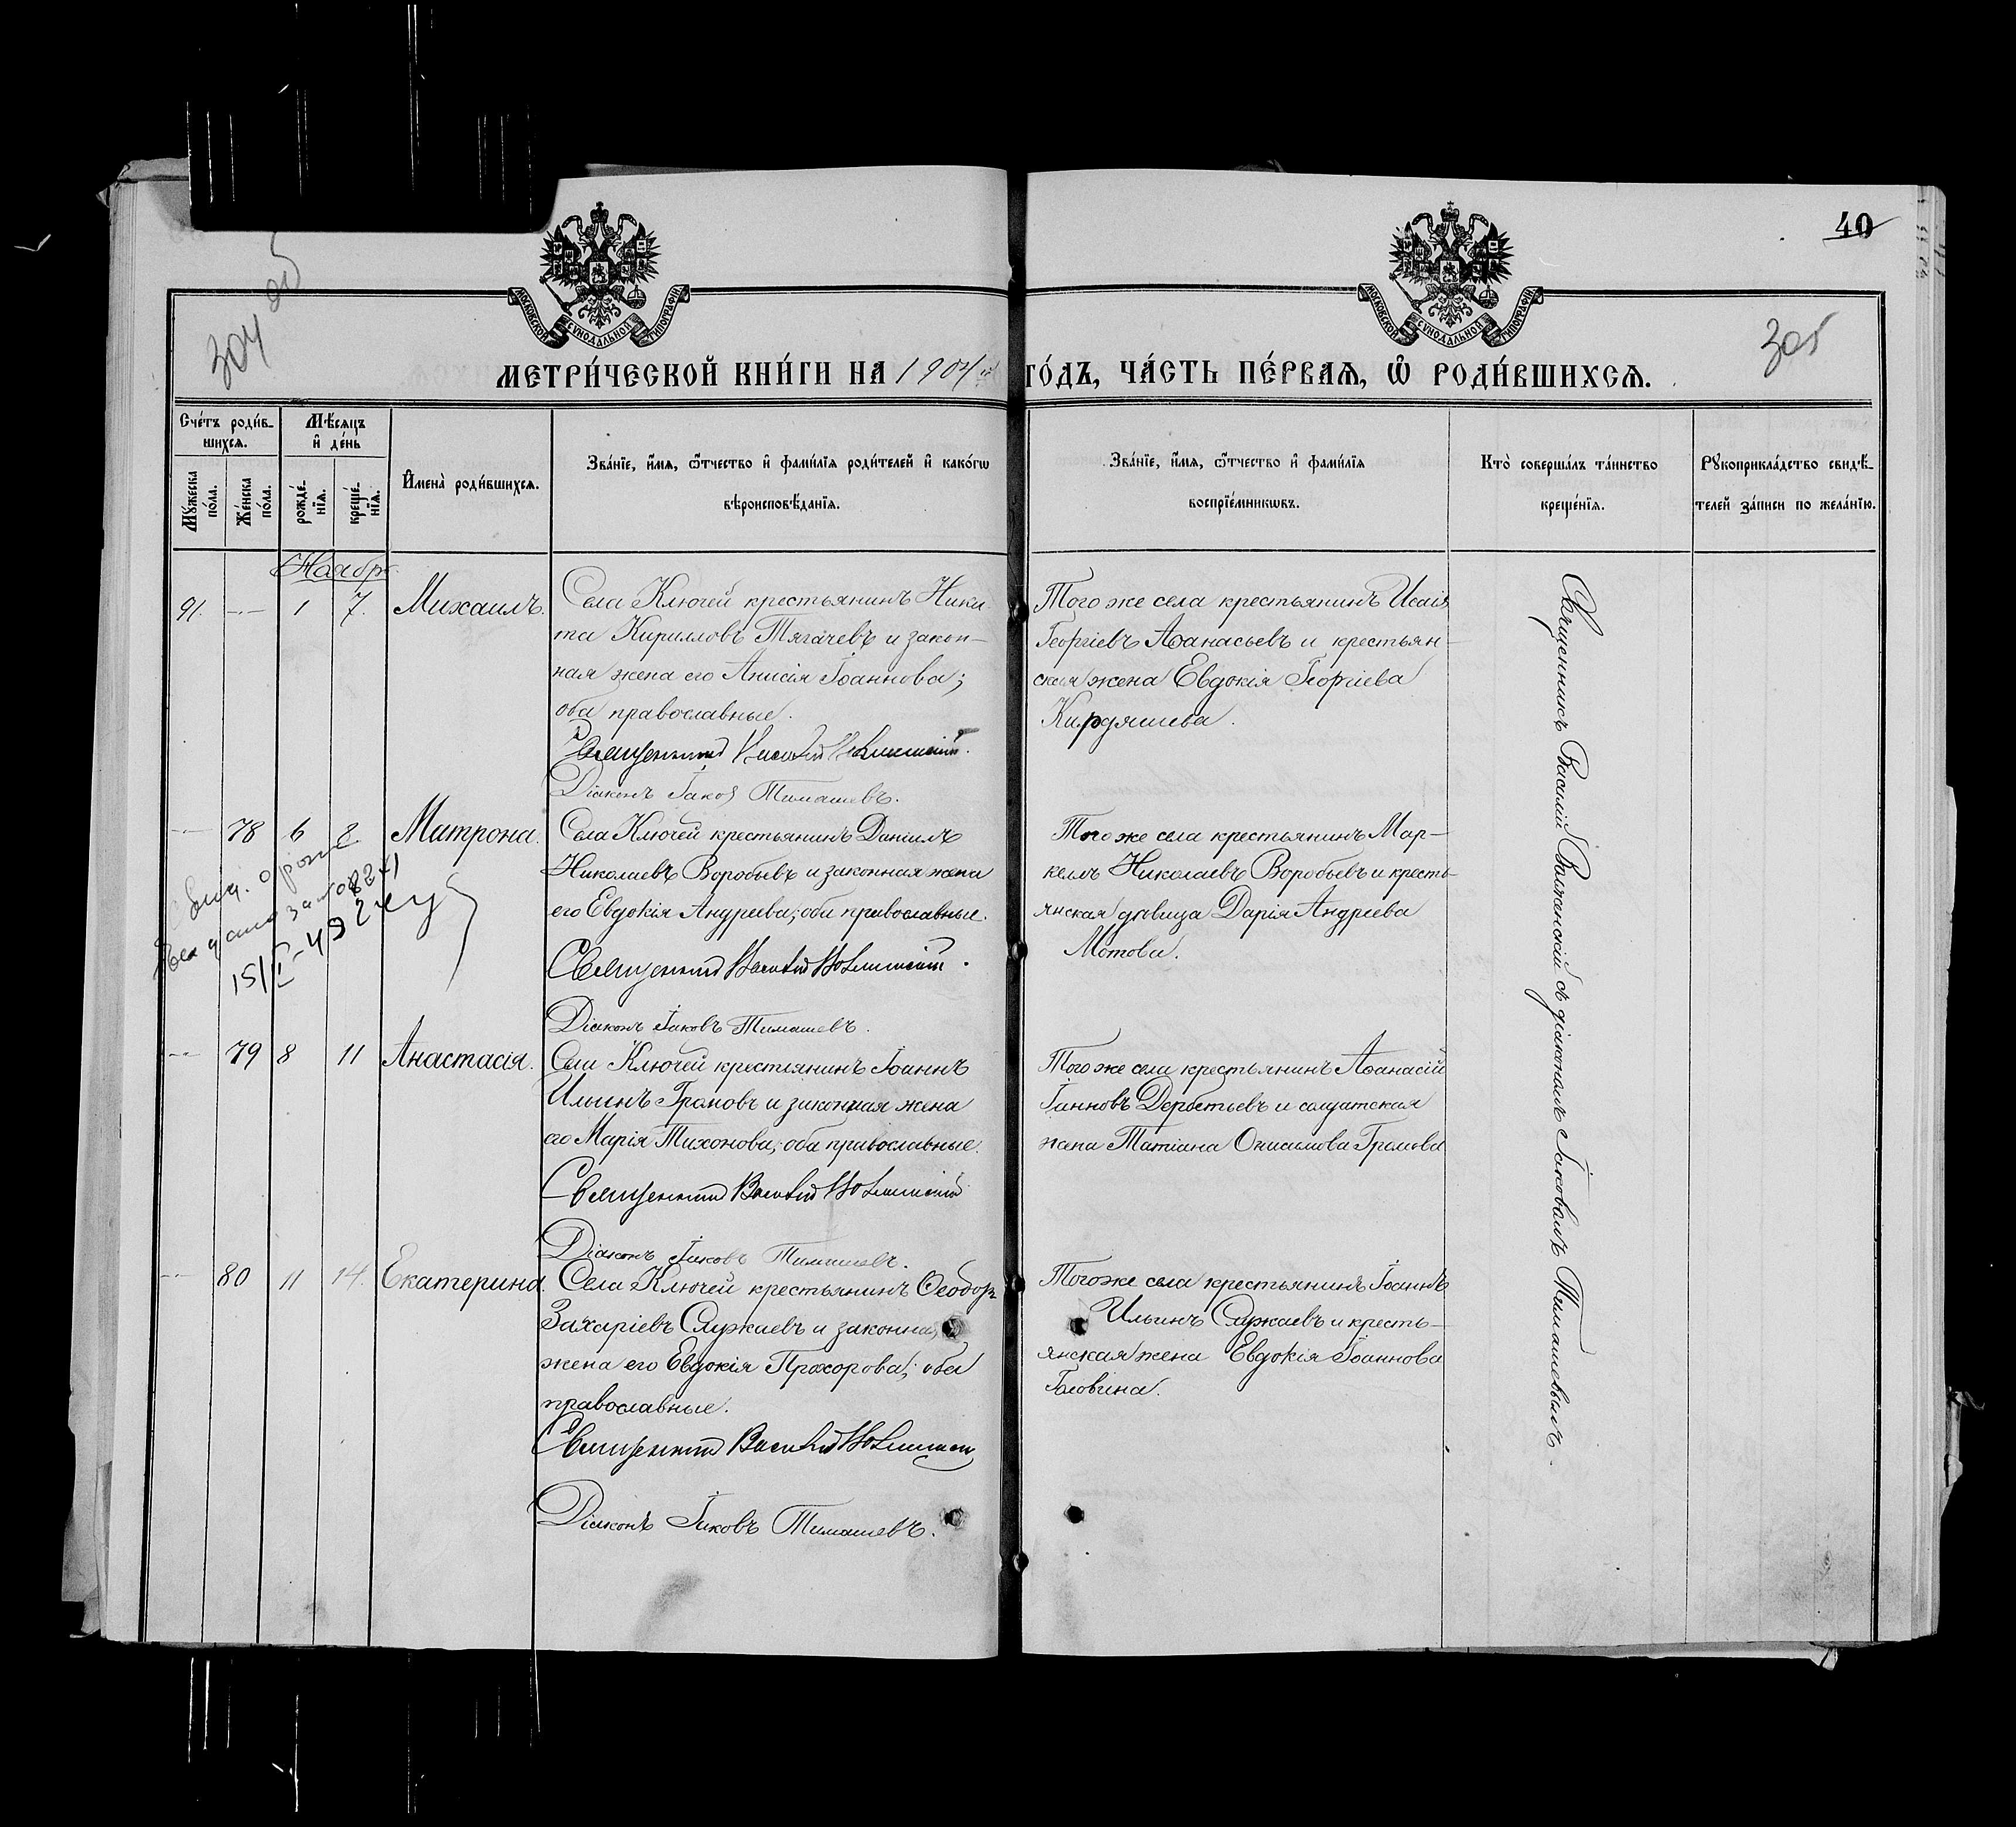 40
304 об
305
МОСКОВСКОЙ СѴНОДАЛЬНОЙ ТИПОГРАФІИ.
МОСКОВСКОЙ СѴНОДАЛЬНОЙ ТИПОГРАФІИ.
МЕТРИ́ЧЕСКОЙ КНИ́ГИ НА 1904 й ГО́ДЪ, ЧА́СТЬ ПЕ́РВАѦ, Ѡ҆ РОДИ́ВШИХСѦ.
Сче́тъ роди́в-
шихсѧ.
Мѣ́сѧцъ
и҆ де́нь
Мꙋ́жеска
по́ла.
Же́нска
по́ла.
рожде́-
нїѧ.
креще́-
нїѧ.
И҆мена̀ роди́вшихсѧ.
Зва́нїе, и҆́мѧ, ѻ҆́тчество и҆ фами́лїѧ роди́телей и҆ како́гѡ
вѣроисповѣ́данїѧ.
Зва́нїе, и҆́мѧ, ѻ҆́тчество и҆ фами́лїѧ
воспрїе́мникѡвъ.
Кто̀ соверша́лъ та́инство
креще́нїѧ.
Рꙋкоприкла́дство свидѣ́-
телей за́писи по жела́нїю.
Ноябрь
91. — 1 7. Михаилъ.
Села Ключей крестьянинъ Ники
та Кирилловъ Тягачевъ и закон-
ная жена его Анисія Іоаннова;
оба православные.
Священникъ Василій
Діаконъ Іаковъ Тимашевъ.
Того же села крестьянинъ Исаія
Георгіевъ Аѳанасьевъ и крестьян-
ская жена Евдокія Георгіева
Кирдяшева.
— 78 6 8 Матрона.
Села Ключей крестьянинъ Даніилъ
Николаевъ Воробьевъ и законная жена
его Евдокія Андреева; оба православные.
Священникъ Василій
Діаконъ Іаковъ Тимашевъ.
Того же села крестьянинъ Мар-
келъ Николаевъ Воробьевъ и кресть-
янская дѣвица Дарія Андреева
Мотова.
15/I-49
— 79 8 11 Анастасія.
Села Ключей крестьянинъ Іоаннъ
Ильинъ Громовъ и законная жена
его Марія Тихонова; оба православные.
Священникъ Василій
Діаконъ Іаковъ Тимашевъ.
Того же села крестьянинъ Аѳанасій
Іанновъ Дербетьевъ и солдатская
жена Татіана Онисимова Громова
— 80 11 14. Екатерина.
Села Ключей крестьянинъ Ѳеодоръ
Захаріевъ Сяркаевъ и законная
жена его Евдокія Прохорова; оба
православные.
Священникъ Василій
Діаконъ Іаковъ Тимашевъ.
Того же села крестьянинъ Іоаннъ
Ильинъ Сяркаевъ и кресть-
янская жена Евдокія Іоаннова
Головина.
Священникъ Василій съ діакономъ Іаковомъ Тимашевымъ.